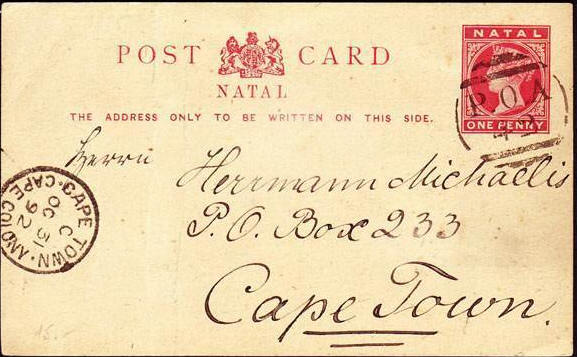 NATAL
POST CARD
NATAL
THE ADDRESS ONLY TO BE WRITTEN ON THIS SIDE.
ONE PENNY
P.O.A
Herrn
Herrmann Michaelis
P.O. Box 233
Cape Town.
CAPE TOWN
C
OC 31
92
15.-